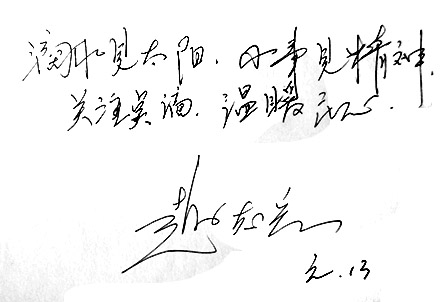 滴水见太阳，小事见精神，
关注点滴，温暖民心。
元.13